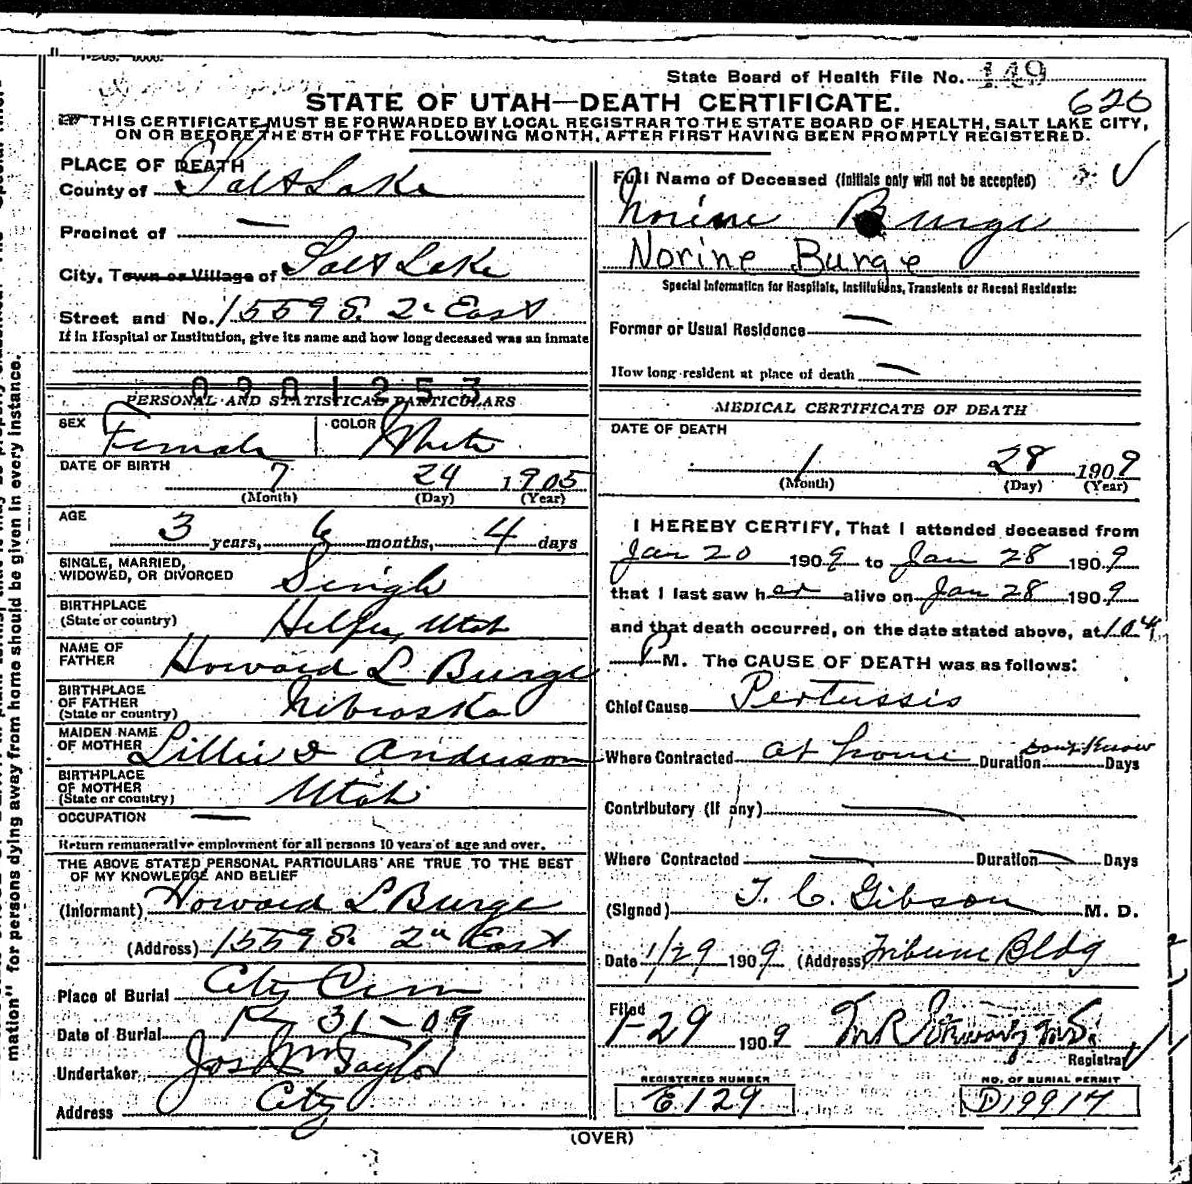 State Board of Health File No. 149
STATE OF UTAH—DEATH CERTIFICATE. 620
THIS CERTIFICATE MUST BE FORWARDED BY LOCAL REGISTRAR TO THE STATE BOARD OF HEALTH, SALT LAKE CITY,
ON OR BEFORE THE 5TH OF THE FOLLOWING MONTH, AFTER FIRST HAVING BEEN PROMPTLY REGISTERED.
PLACE OF DEATH
County of Salt Lake
Precinct of —
City, Town or Village of Salt Lake
Street and No. 1559 S. 2 East
If in Hospital or Institution, give its name and how long deceased was an inmate
0901253
PERSONAL AND STATISTICAL PARTICULARS
SEX Female COLOR White
DATE OF BIRTH 7 24 1905
(Month) (Day) (Year)
AGE 3 years, 6 months, 4 days
SINGLE, MARRIED,
WIDOWED, OR DIVORCED Single
BIRTHPLACE
(State or country) Helper, Utah
NAME OF
FATHER Howard L Burge
BIRTHPLACE
OF FATHER
(State or country) Nebraska
MAIDEN NAME
OF MOTHER Lillie D Anderson
BIRTHPLACE
OF MOTHER
(State or country) Utah
OCCUPATION —
Return remunerative employment for all persons 10 years of age and over.
THE ABOVE STATED PERSONAL PARTICULARS ARE TRUE TO THE BEST
OF MY KNOWLEDGE AND BELIEF
(Informant) Howard L Burge
(Address) 1559 S. 2nd East
Place of Burial City Cem
Date of Burial 31-09
Undertaker Jos Wm Taylor
Address City
Full Name of Deceased (Initials only will not be accepted)
Norine Burge
Norine Burge
Special Information for Hospitals, Institutions, Transients or Recent Residents:
Former or Usual Residence —
How long resident at place of death —
MEDICAL CERTIFICATE OF DEATH
DATE OF DEATH
1 28 1909
(Month) (Day) (Year)
I HEREBY CERTIFY, That I attended deceased from
Jan 20 1909 to Jan 28 1909
that I last saw her alive on Jan 28 1909
and that death occurred, on the date stated above, at
P M. The CAUSE OF DEATH was as follows:
Chief Cause Pertussis
Where Contracted at home Duration don't know Days
Contributory (If any) —
Where Contracted — Duration — Days
(Signed) T. C. Gibson M. D.
Date 1/29 1909 (Address) Tribune Bldg
Filed
1-29 1909
Registrar
REGISTERED NUMBER
E129
NO. OF BURIAL PERMIT
D19917
(OVER)
mation" for persons dying away from home should be given in every instance.